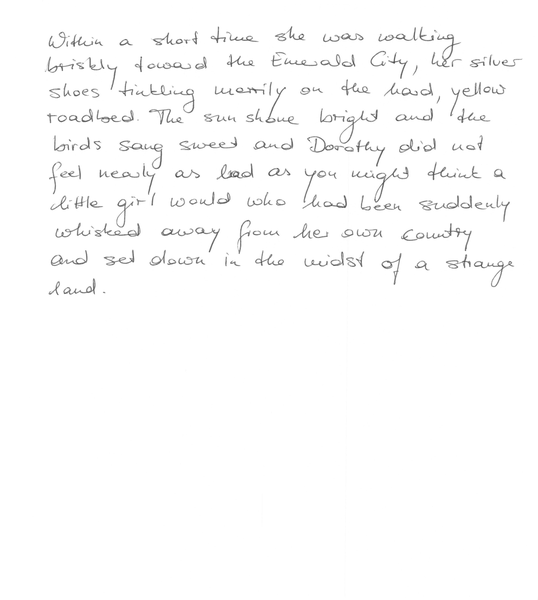 Within a short time she was walking
briskly toward the Emerald City, her silver
shoes tinkling merrily on the hard, yellow
roadbed. The sun shone bright and the
birds sang sweet and Dorothy did not
feel nearly as bad as you might think a
little girl would who had been suddenly
whisked away from her own country
and set down in the midst of a strange
land.